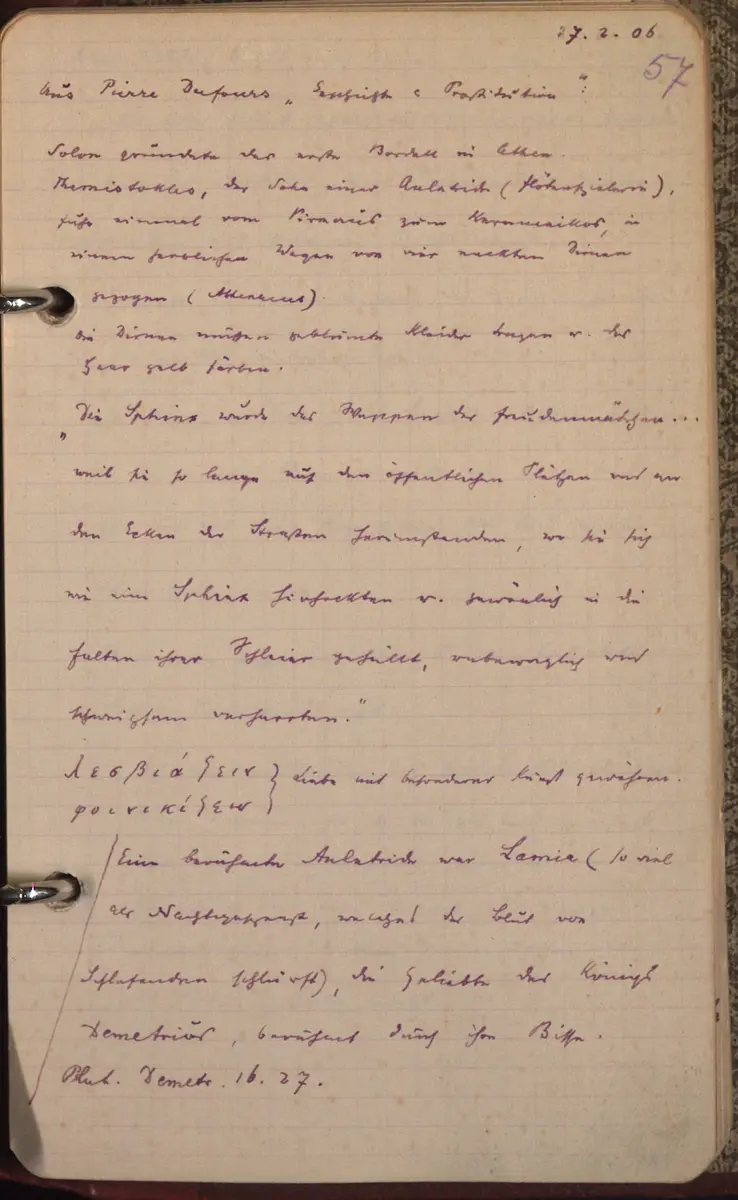 27. 2. 06
57
Aus Pierre Dufours „Geschichte d Prostitution“:
Solon gründete das erste Bordell in Athen.
Themistokles, der Sohn einer Auletride (Flötenspielerin),
fuhr einmal vom Piraeus zum Kerameikos, in
einem herrlichen Wagen von vier nackten Dirnen
gezogen (Athenaeus).
Die Dirnen müssen geblümte Kleider tragen u. das
Haar gelb färben.
„Die Sphinx wurde das Wappen der Freudenmädchen...
weil sie so lange auf den öffentlichen Plätzen und an
den Ecken der Straßen herumstanden, wo sie sich
wie eine Sphinx hinhockten u. gewönlich in die
Falten ihrer Schleier gehüllt, unbeweglich und
schweigsam verharrten.“
λεσβιάζειν } Liebe mit besonderer Kunst gewähren.
φοινικίζειν }
Eine berühmte Auletride war Lamia (so viel
als Nachtgespenst, welches das Blut von
Schlafenden schlürft), die Geliebte des Königs
Demetrius, berühmt durch ihre Bisse.
Plut. Demetr. 16. 27.